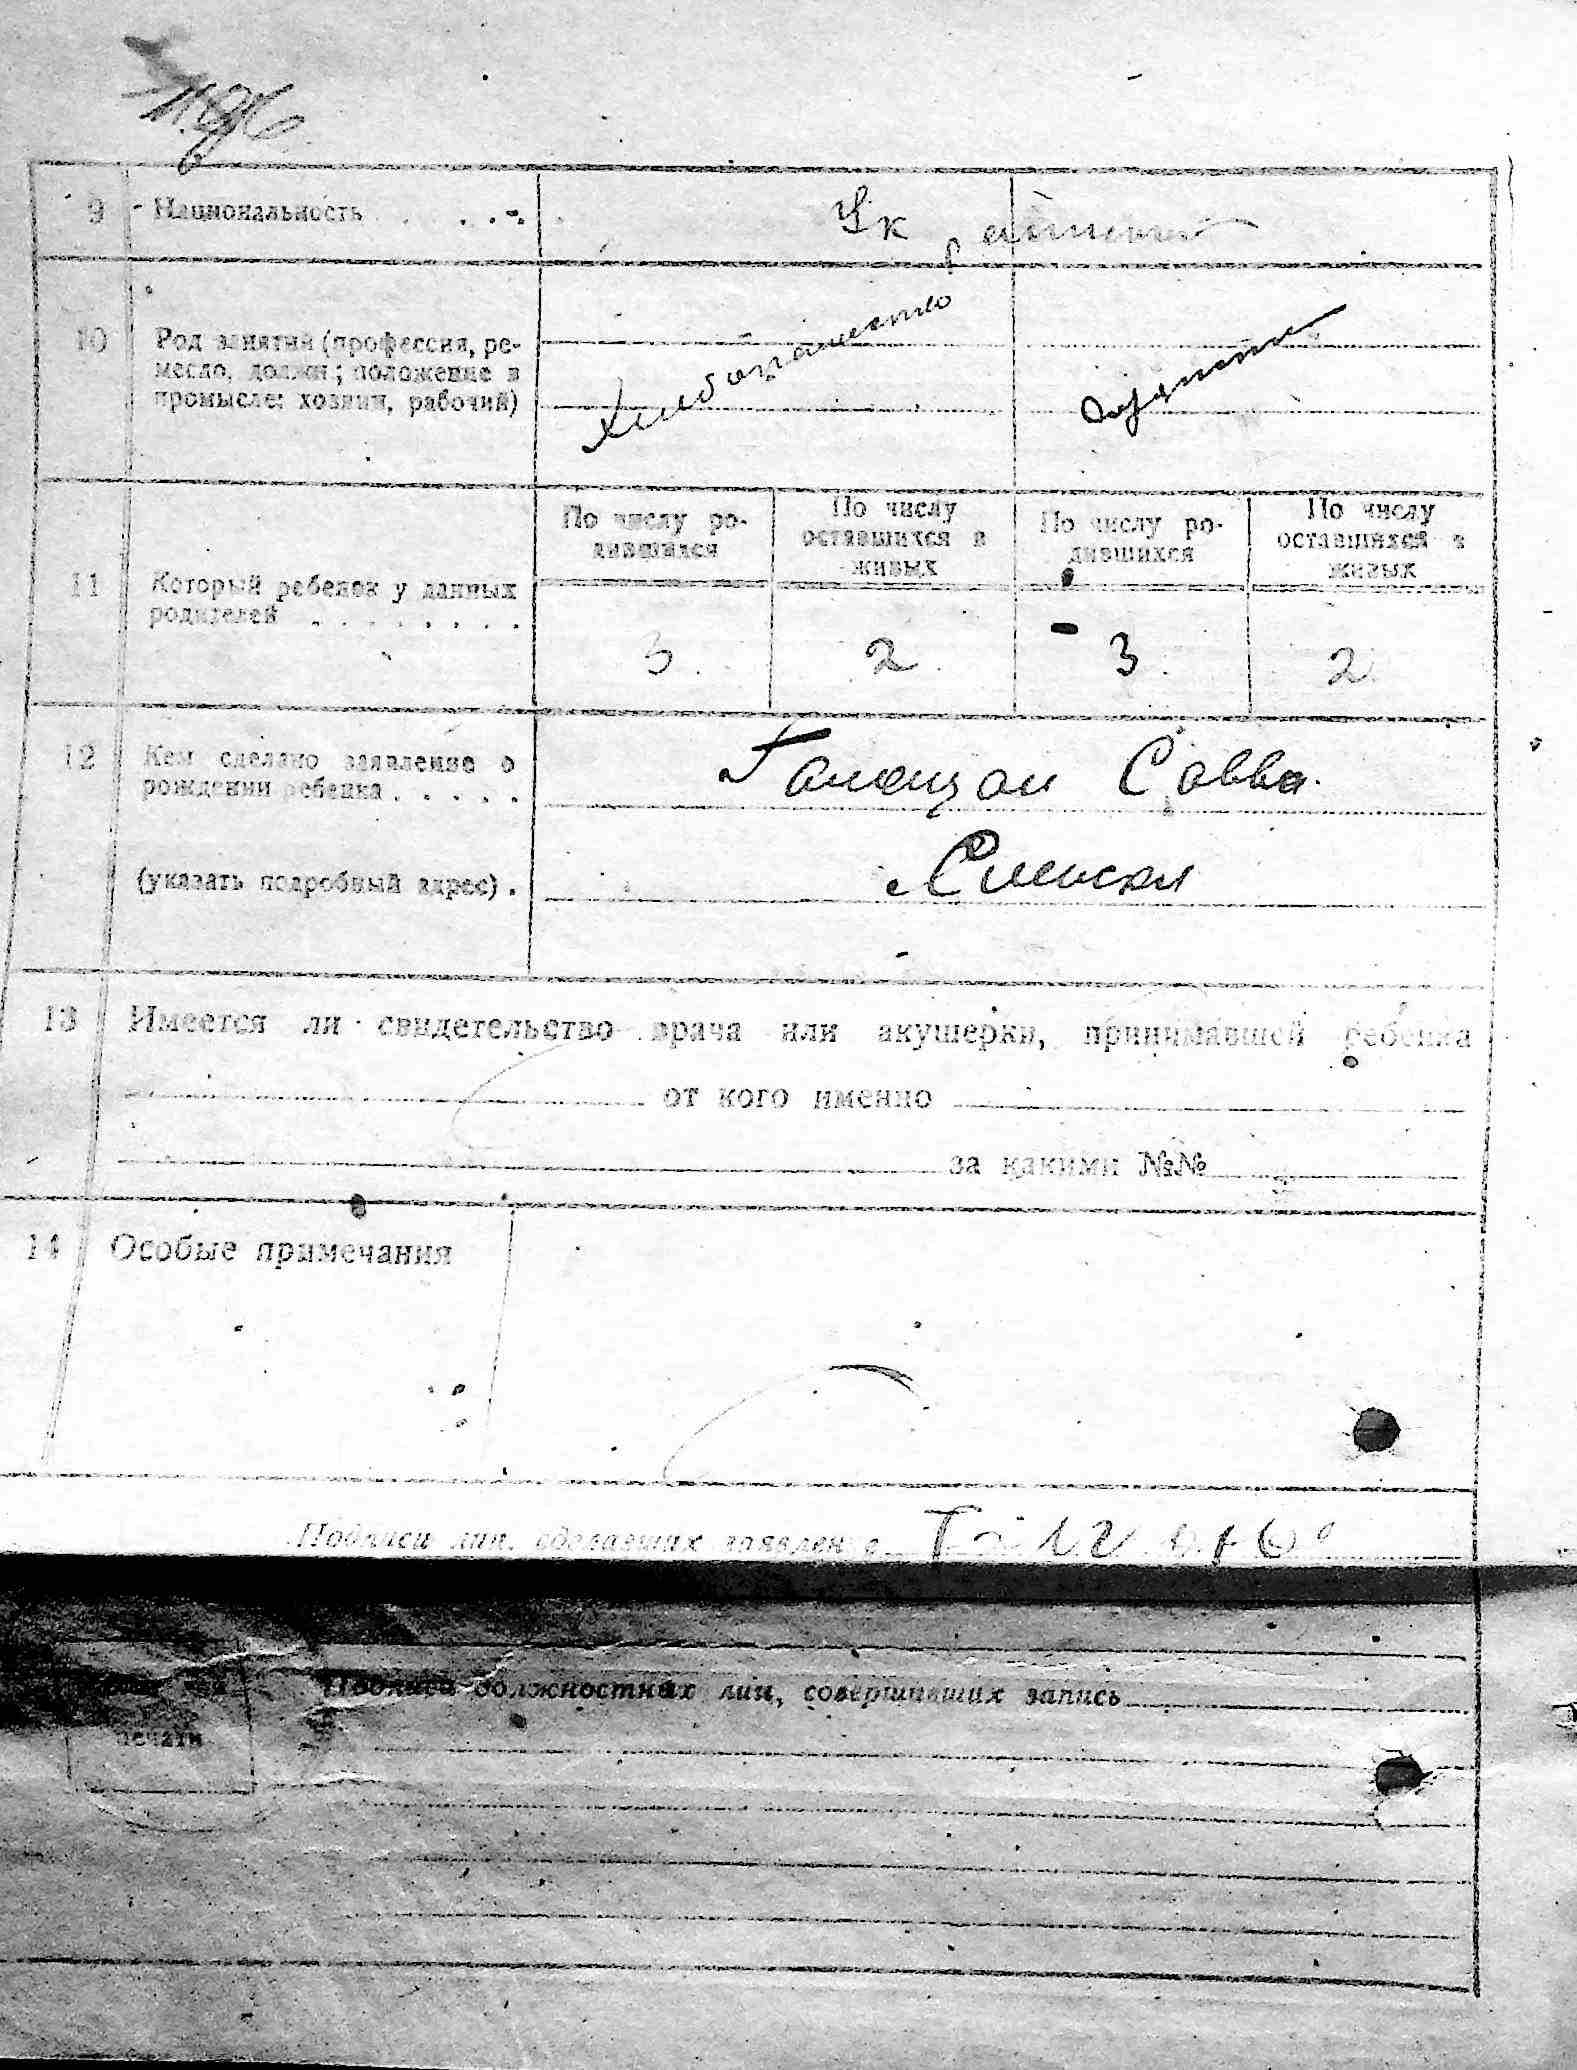 9 Национальность
Украинцы
10 Род занятий (профессия, ре-
месло, должн; положение в
промысле: хозяин, рабочий)
Хлебопашество
По числу ро-
дившихся
По числу
оставшихся в
живых
По числу ро-
дившихся
По числу
оставшихся в
живых
11 Который ребенок у данных
родителей
3 2 3 2
12 Кем сделано заявление о
рождении ребенка
Савва
(указать подробный адрес).
13 Имеется ли свидетельство врача или акушерки, принимавшей ребенка
от кого именно
за какими №№
14 Особые примечания
Подписи лиц, сделавших заявление
Подписи должностных лиц, совершивших запись
печати